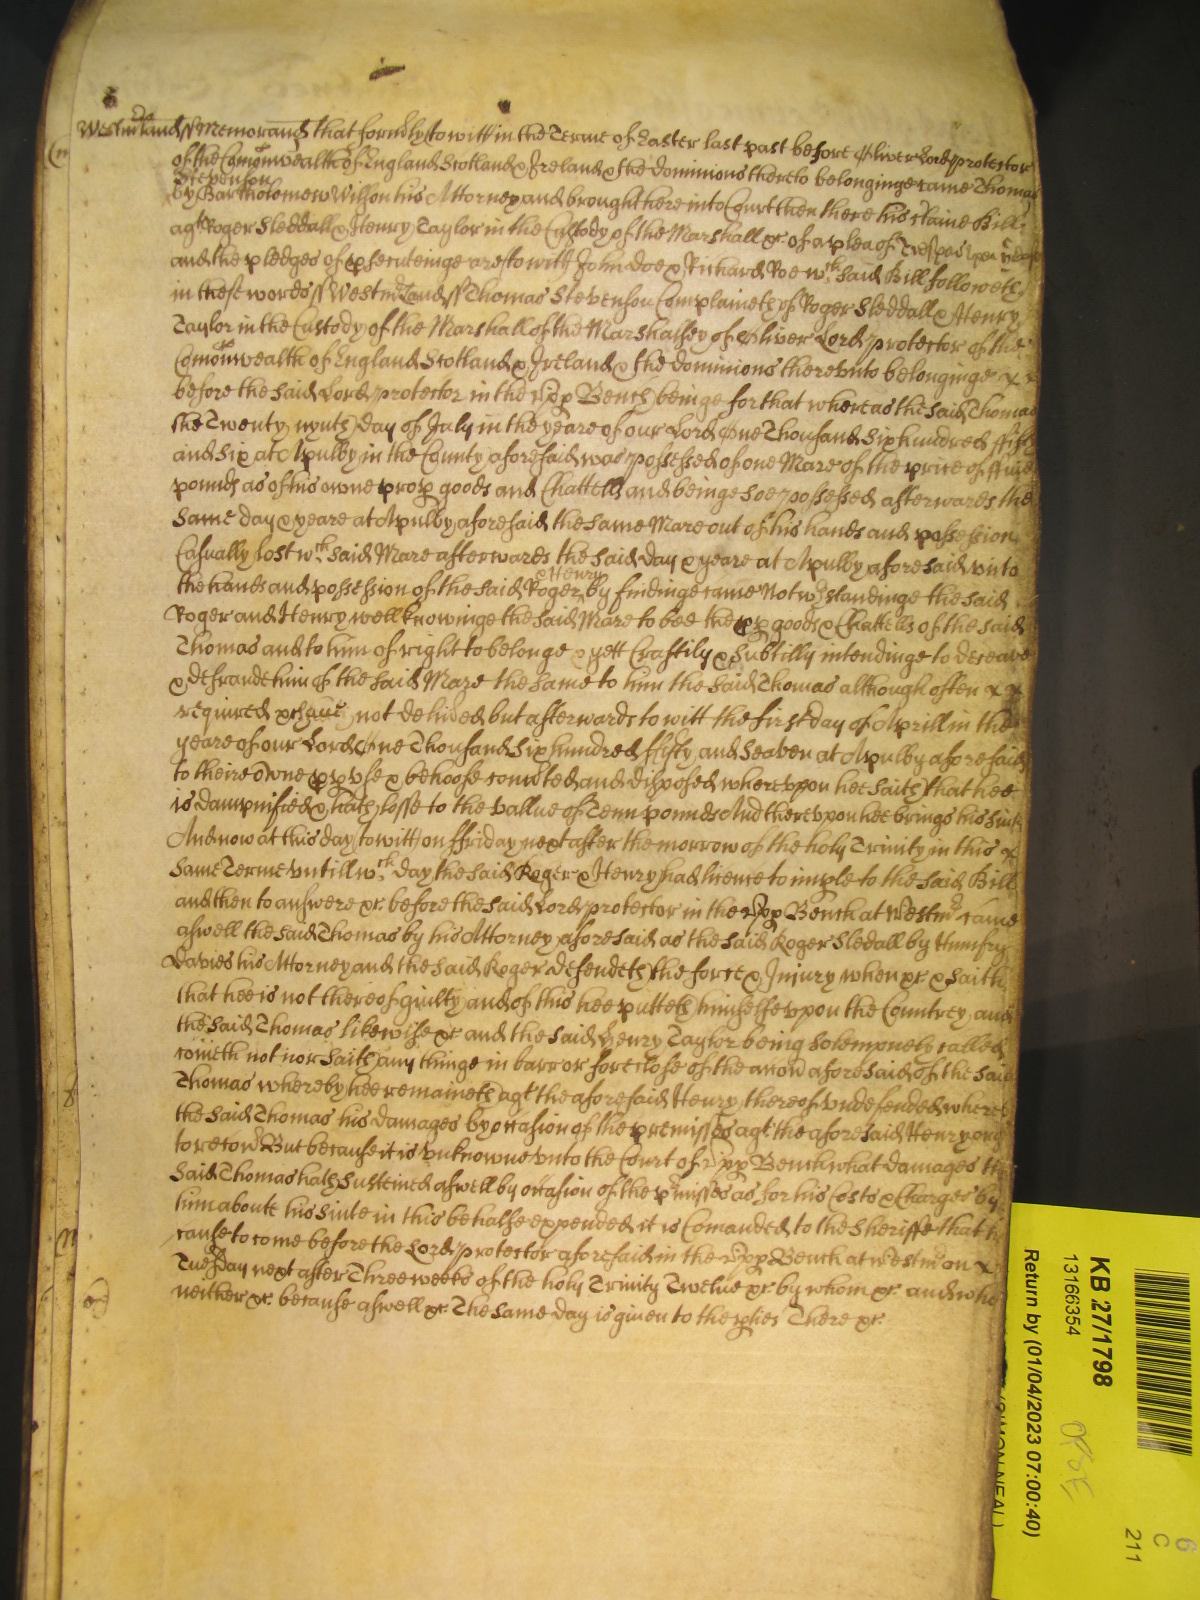 Westmrland ss Memorand that formly to witt in the Terme of Easter last past before Oliver Lord protector
of the Comonwealth of England Scotland & Ireland & the dominions thereto belonginge came Thomas
Stevenson
by Bartholomew Willson his Attorney and brought here into Court then there his Claime Bill
agt Roger Sleddall & Henry Taylor in the Custody of the Marshall &c of a plea of Trespas upon
and the pledges of psecuteinge are to witt John Doe & Richard Roe wch said Bill followeth
in these words ss Westmrland ss Thomas Stevenson Complaineth of Roger Sleddall & Henry
Taylor in the Custody of the Marshall of the Marshalsey of Oliver Lord protector of the
Comonwealth of England Scotland & Ireland & the dominions therevnto belonginge x x
before the said Lord protector in the vpp Bench beinge for that whereas the said Thomas
the Twenty nynth day of July in the yeare of our Lord One Thousand Six hundred ffifty
and Six at Apulby in the County aforesaid was possessed of one Mare of the price of ffive
pounds as of his owne prop goods and Chattells and beinge soe possessed afterwards the
same day & yeare at Apulby aforesaid the same Mare out of his hands and possession
Casually lost wch said Mare afterwards the said day & yeare at Apulby aforesaid vnto
& Henry
the hands and possession of the said Roger by findinge came Notwthstandinge the said
Roger and Henry well knowinge the said Mare to bee the pp goods & Chattells of the said
Thomas and to him of right to belonge & yett Craftily & Subtilly intendinge to deceave
& defraude him of the said Mare the same to him the said Thomas although often x x
required &c have not delived but afterwards to witt the first day of Aprill in the
yeare of our Lord One Thousand Six hundred ffifty and Seaven at Apulby aforesaid
to theire owne pp vse & behoofe convted and disposed wherevpon hee saith that hee
is dampnified & hath losse to the vallue of Tenn pounds And therevpon hee brings his suit
And now at this day to witt on ffriday next after the morrow of the holy Trinity in this x
same Terme vntill wch day the said Roger & Henry had licence to imple to the said Bill
and then to answere &c before the said Lord protector in the vpp Bench at Westmr came
aswell the said Thomas by his Attorney aforesaid as the said Roger Sledall by Humfry
Davies his Attorney and the said Roger defendeth the force & Injury when &c & saith
that hee is not thereof guilty and of this hee putteth himselfe vpon the Countrey and
the said Thomas likewise &c and the said Henry Taylor being solempnely called
cometh not nor saith any thinge in barr or foreclose of the accon aforesaid of the said
Thomas whereby hee remaineth agt the aforesaid Henry thereof vndefended where
the said Thomas his damages by occasion of the premisses agt the aforesaid Henry oug
to recov But because it is vnknowne vnto the Court of vpp Bench what damages th
said Thomas hath susteined aswell by occasion of the pmisses as for his Costs & Charges by
him aboute his suite in this behalfe expended it is Comanded to the Sheriffe that h
cause to come before the Lord protector aforesaid in the vpp Bench at Westmr on x
Tuesday next after Three weeks of the holy Trinity Twelve &c by whom &c and who
neither &c because aswell &c The same day is given to the pties There &c
KB 27/1798
13166354
Return by (01/04/2023 07:00:40)
(SIMON NEAL)
6
C
211